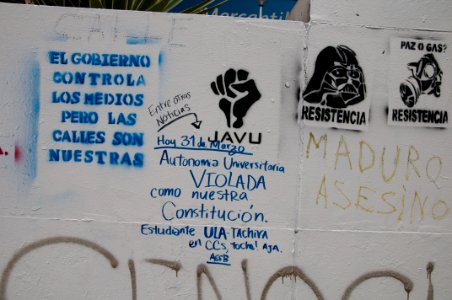 Mercantil
EL GOBIERNO
CONTROLA
LOS MEDIOS
PERO LAS
CALLES SON
NUESTRAS
Entre otras
Noticias
JAVU
Hoy 31 de Marzo
Autonomia Universitaria
VIOLADA
como nuestra
Constitución.
Estudiante ULA-TACHIRA
en CCS,
RESISTENCIA
PAZ O GAS?
RESISTENCIA
MADURO
ASESINO